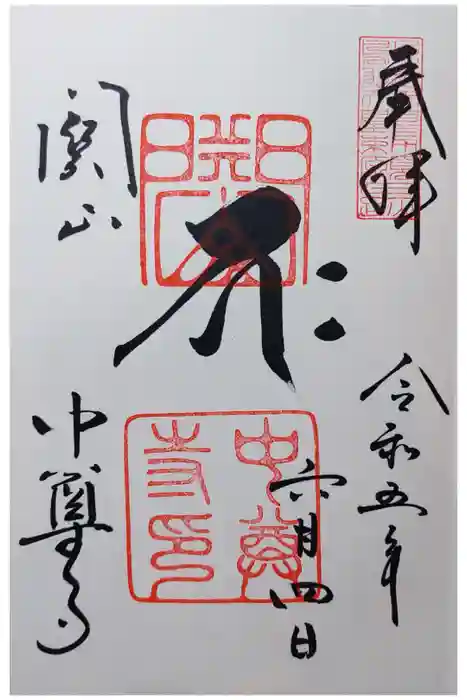 奉拝
令和五年
六月四日
中尊
寺印
關山
中尊寺